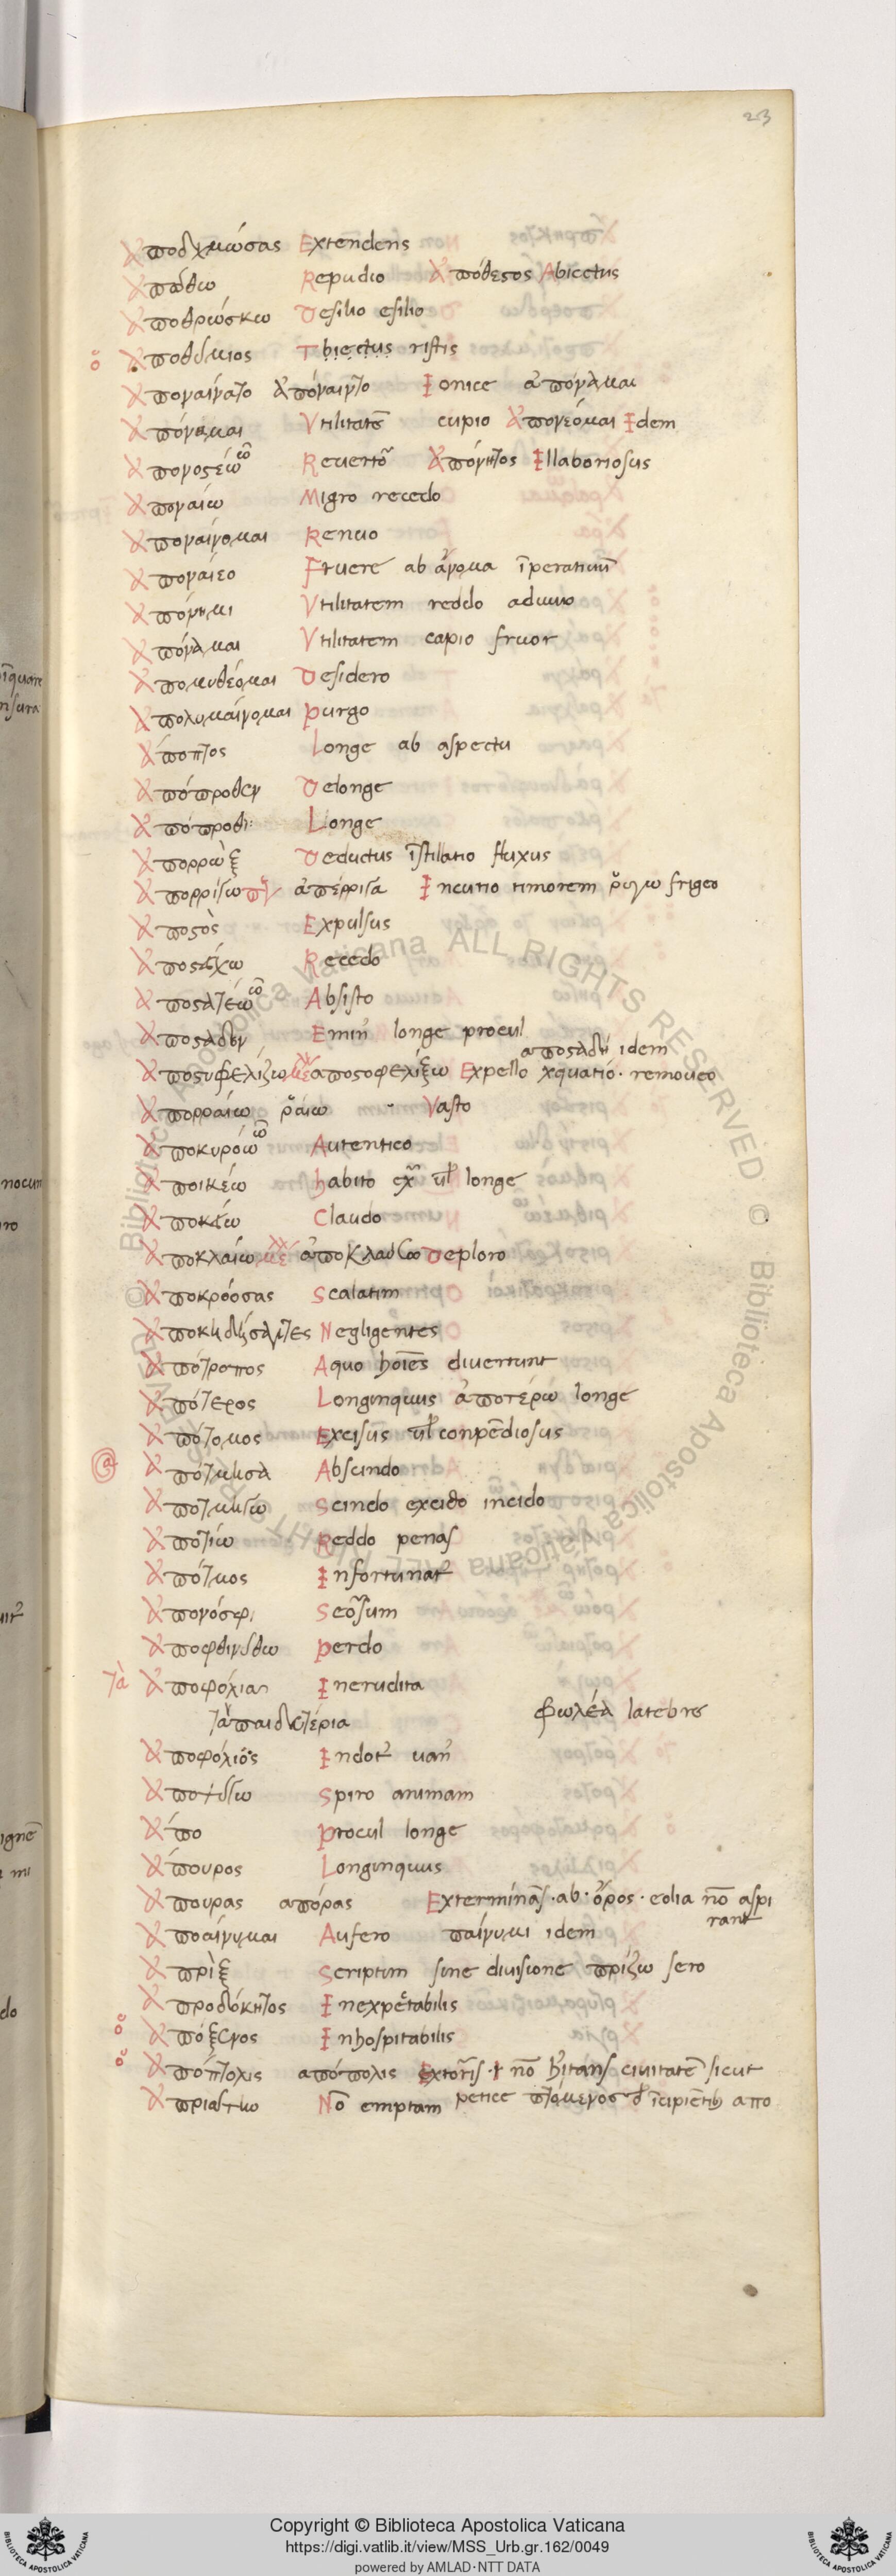 23
Ἀποδχμώσας Extendens
Ἀπωθω Repudio Ἀπόθεστος Abiectus
Ἀποθρώσκω Desilio esilio
Ἀποθύμιος Tbiectus ristis
Ἀποναίνατο ἀπόναιντο Ionice ἀπόναμαι
Ἀπόναμαι Vtilitatē cupio Ἀπονεόμαι Idem
Ἀπονοστέω Reuerto Ἀπόνητος Illaboriosus
Ἀποναίω Migro recedo
Ἀποναίνομαι Renuo
Ἀποναίεο Fruere ab ἄνομα īperatiuū
Ἀπόνημι Vtilitatem reddo adiuuo
Ἀπόναμαι Vtilitatem capio fruor
Ἀπομυθέομαι Desidero
Ἀπολυμαίνομαι Purgo
Ἄποπτος Longe ab aspectu
Ἀπόπροθεν Delonge
Ἀπόπροθι Longe
Ἀπορρὼξ Deductus īstillatio fluxus
Ἀπορρίγω ἀπέρριγα Incutio timorem ῥιγω frigeo
Ἀποστὸς Expulsus
Ἀποστείχω Recedo
Ἀποστατέω Absisto
Ἀποσταδὸν Emin longe procul
αποσταδὴ idem
Ἀποστυφελίζω αποστοφελίξω Expello exquatio· remoueo
Ἀπορραίω ῥαίω Vasto
Ἀποκυρόω Autentico
Ἀποικέω habito ex ul longe
Ἀποκλείω Claudo
Ἀποκλαίω ἀποκλαύσω Deploro
Ἀποκρόσσας Scalatim
Ἀποκηδήσαντες Negligentes
Ἀπότροπος Aquo hoīes diuertunt
Ἀπότερος Longinquus ἀποτέρω longe
Ἀπότομος Excisus ul conpēdiosus
Ἀπότμησα Abscindo
Ἀποτμήγω Scindo excido incido
Ἀποτίω Reddo penas
Ἀπότμος Infortunat
Ἀπονόσφι Seorsum
Ἀποφθινύθω Perdo
τὰ Ἀποφόλια Inerudita
τἀπαιδευτέρια φωλέα latebre
Ἀποφόλιος Indot uan
Ἀποψύχω Spiro animam
Ἄπο Procul longe
Ἄπουρος Longinquus
Ἀπουρας απόρας Exterminās·ab·ὅρος· eolia nō aspi
rant
Ἀποαίνυμαι Aufero παίνυμι idem
Ἀπρὶξ Scriptim sine diuisione πρίζω sero
Ἀπροδόκητος Inexpectabilis
Ἀπόξενος Inhospitabilis
Ἀπόπτολις απόπολις Extorris· nō hitans ciuitatē sicut
Ἀπριάτην Nō emptam petice πτόμενος īcipiētib απο
Copyright © Biblioteca Apostolica Vaticana
https://digi.vatlib.it/view/MSS_Urb.gr.162/0049
powered by AMLAD·NTT DATA